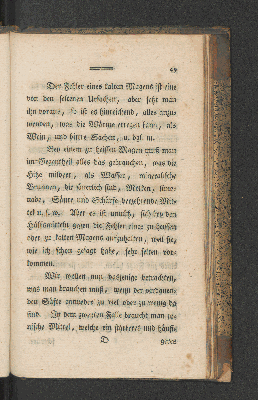 49
Der Fehler eines kalten Magens ist eine
von den seltenen Ursachen, aber setzt man
ihn voraus, so ist es hinreichend, alles anzu-
wenden, was die Wärme erregen kann, als
Wein, und bittre Sachen, u. dgl. m.
Bey einem zu heissen Magen muß man
im Gegentheil alles das gebrauchen, was die
Hitze mildert, als Wasser, mineralische
Brunnen, die säuerlich sind, Molken, Limo-
nade, Säure und Schärfe verzehrende Mit-
tel u. s. w. Aber es ist unnütz, sich bey den
Hülfsmitteln gegen die Fehler eines zu heissen
oder zu kalten Magens aufzuhalten, weil sie,
wie ich schon gesagt habe, sehr selten vor-
kommen.
Wir wollen nun dasjenige betrachten,
was man brauchen muß, wenn der verdauen-
den Säfte entweder zu viel oder zu wenig da
sind. In dem zweyten Falle braucht man to-
nische Mittel, welche ein stärkeres und häufi-
D
geres